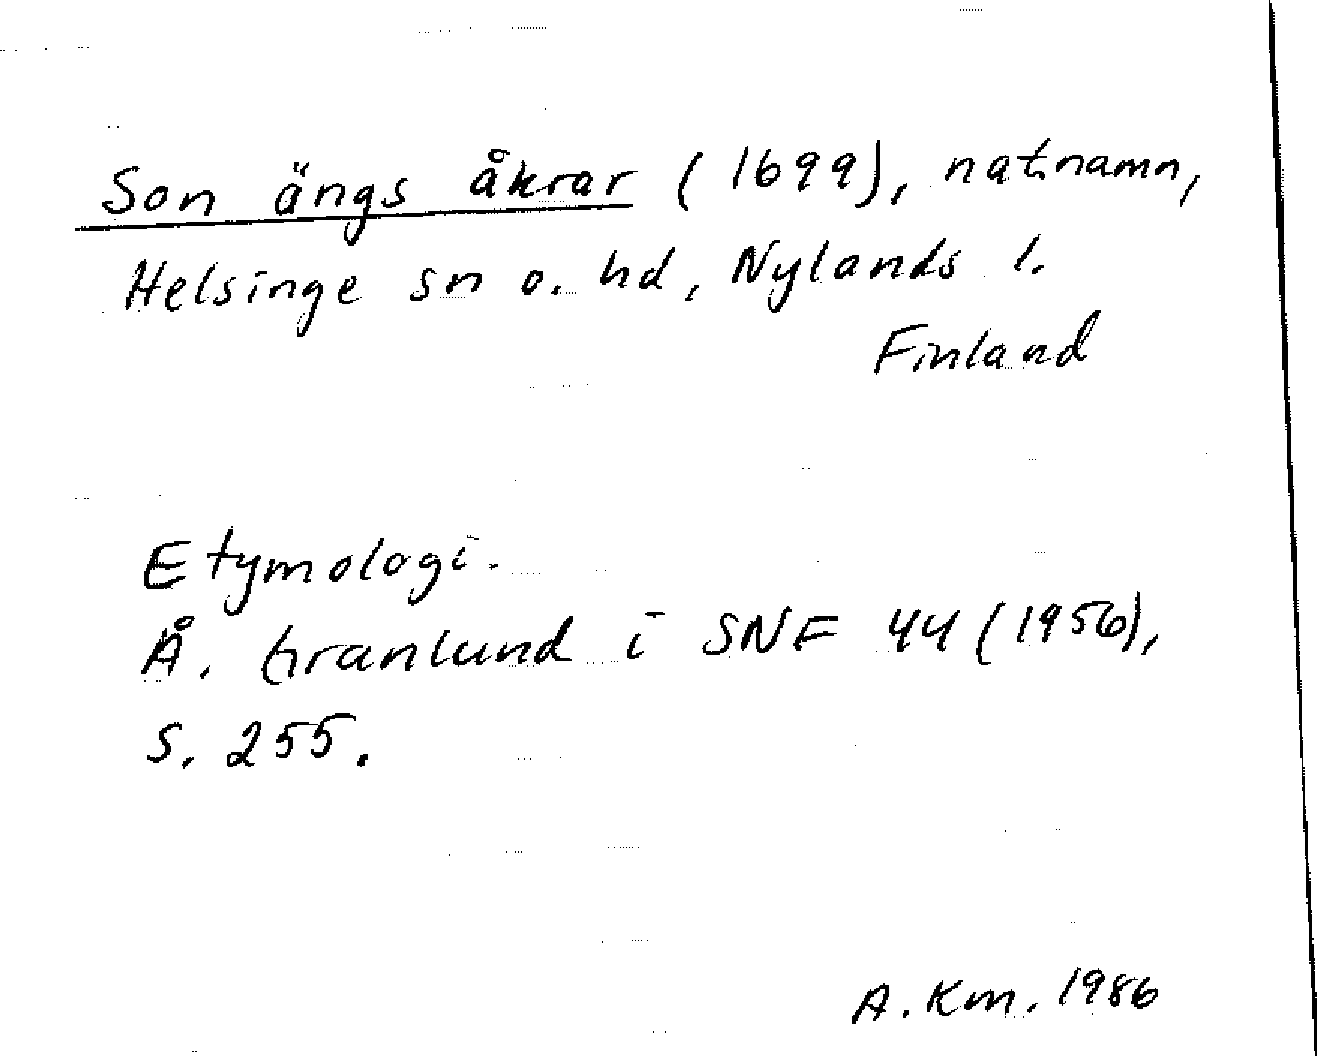 Son ängs åkrar (1699), natnamn,
Helsinge sn o. hd, Nylands l.
Finland
Etymologi.
Å. Granlund i SNF 44 (1956),
s. 255.
A. Km. 1986